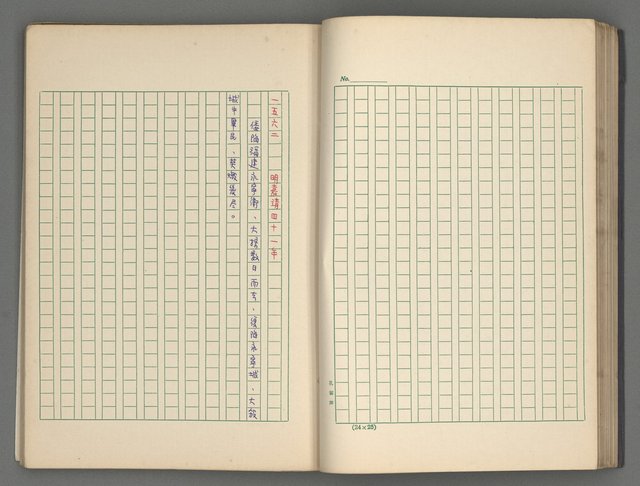 No.
一五六二 明嘉靖四十一年
倭陷福建永寧衛、大掠數日而去、復陷永寧城、大殺
城中軍民、焚燬幾尽。
(24×25)